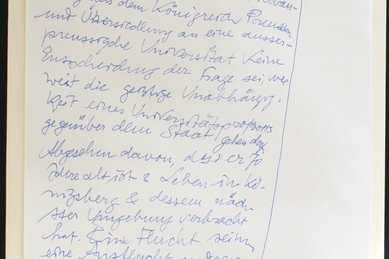 aus dem Königreich Preussen
und Übersiedlung an eine ausser-
preussische Universität keine
Entscheidung der Frage sei, wie
weit die geistige Unabhängig-
keit eines Universitätsprofessors
gegenüber dem Staat gehen dürfe
Abgesehen davon, dass er 70
Jahre alt ist & Leben in Kö-
nigsberg & dessem näch-
ster Umgebung verbracht
hat. Eine Flucht sei ihm
eine Ausflucht